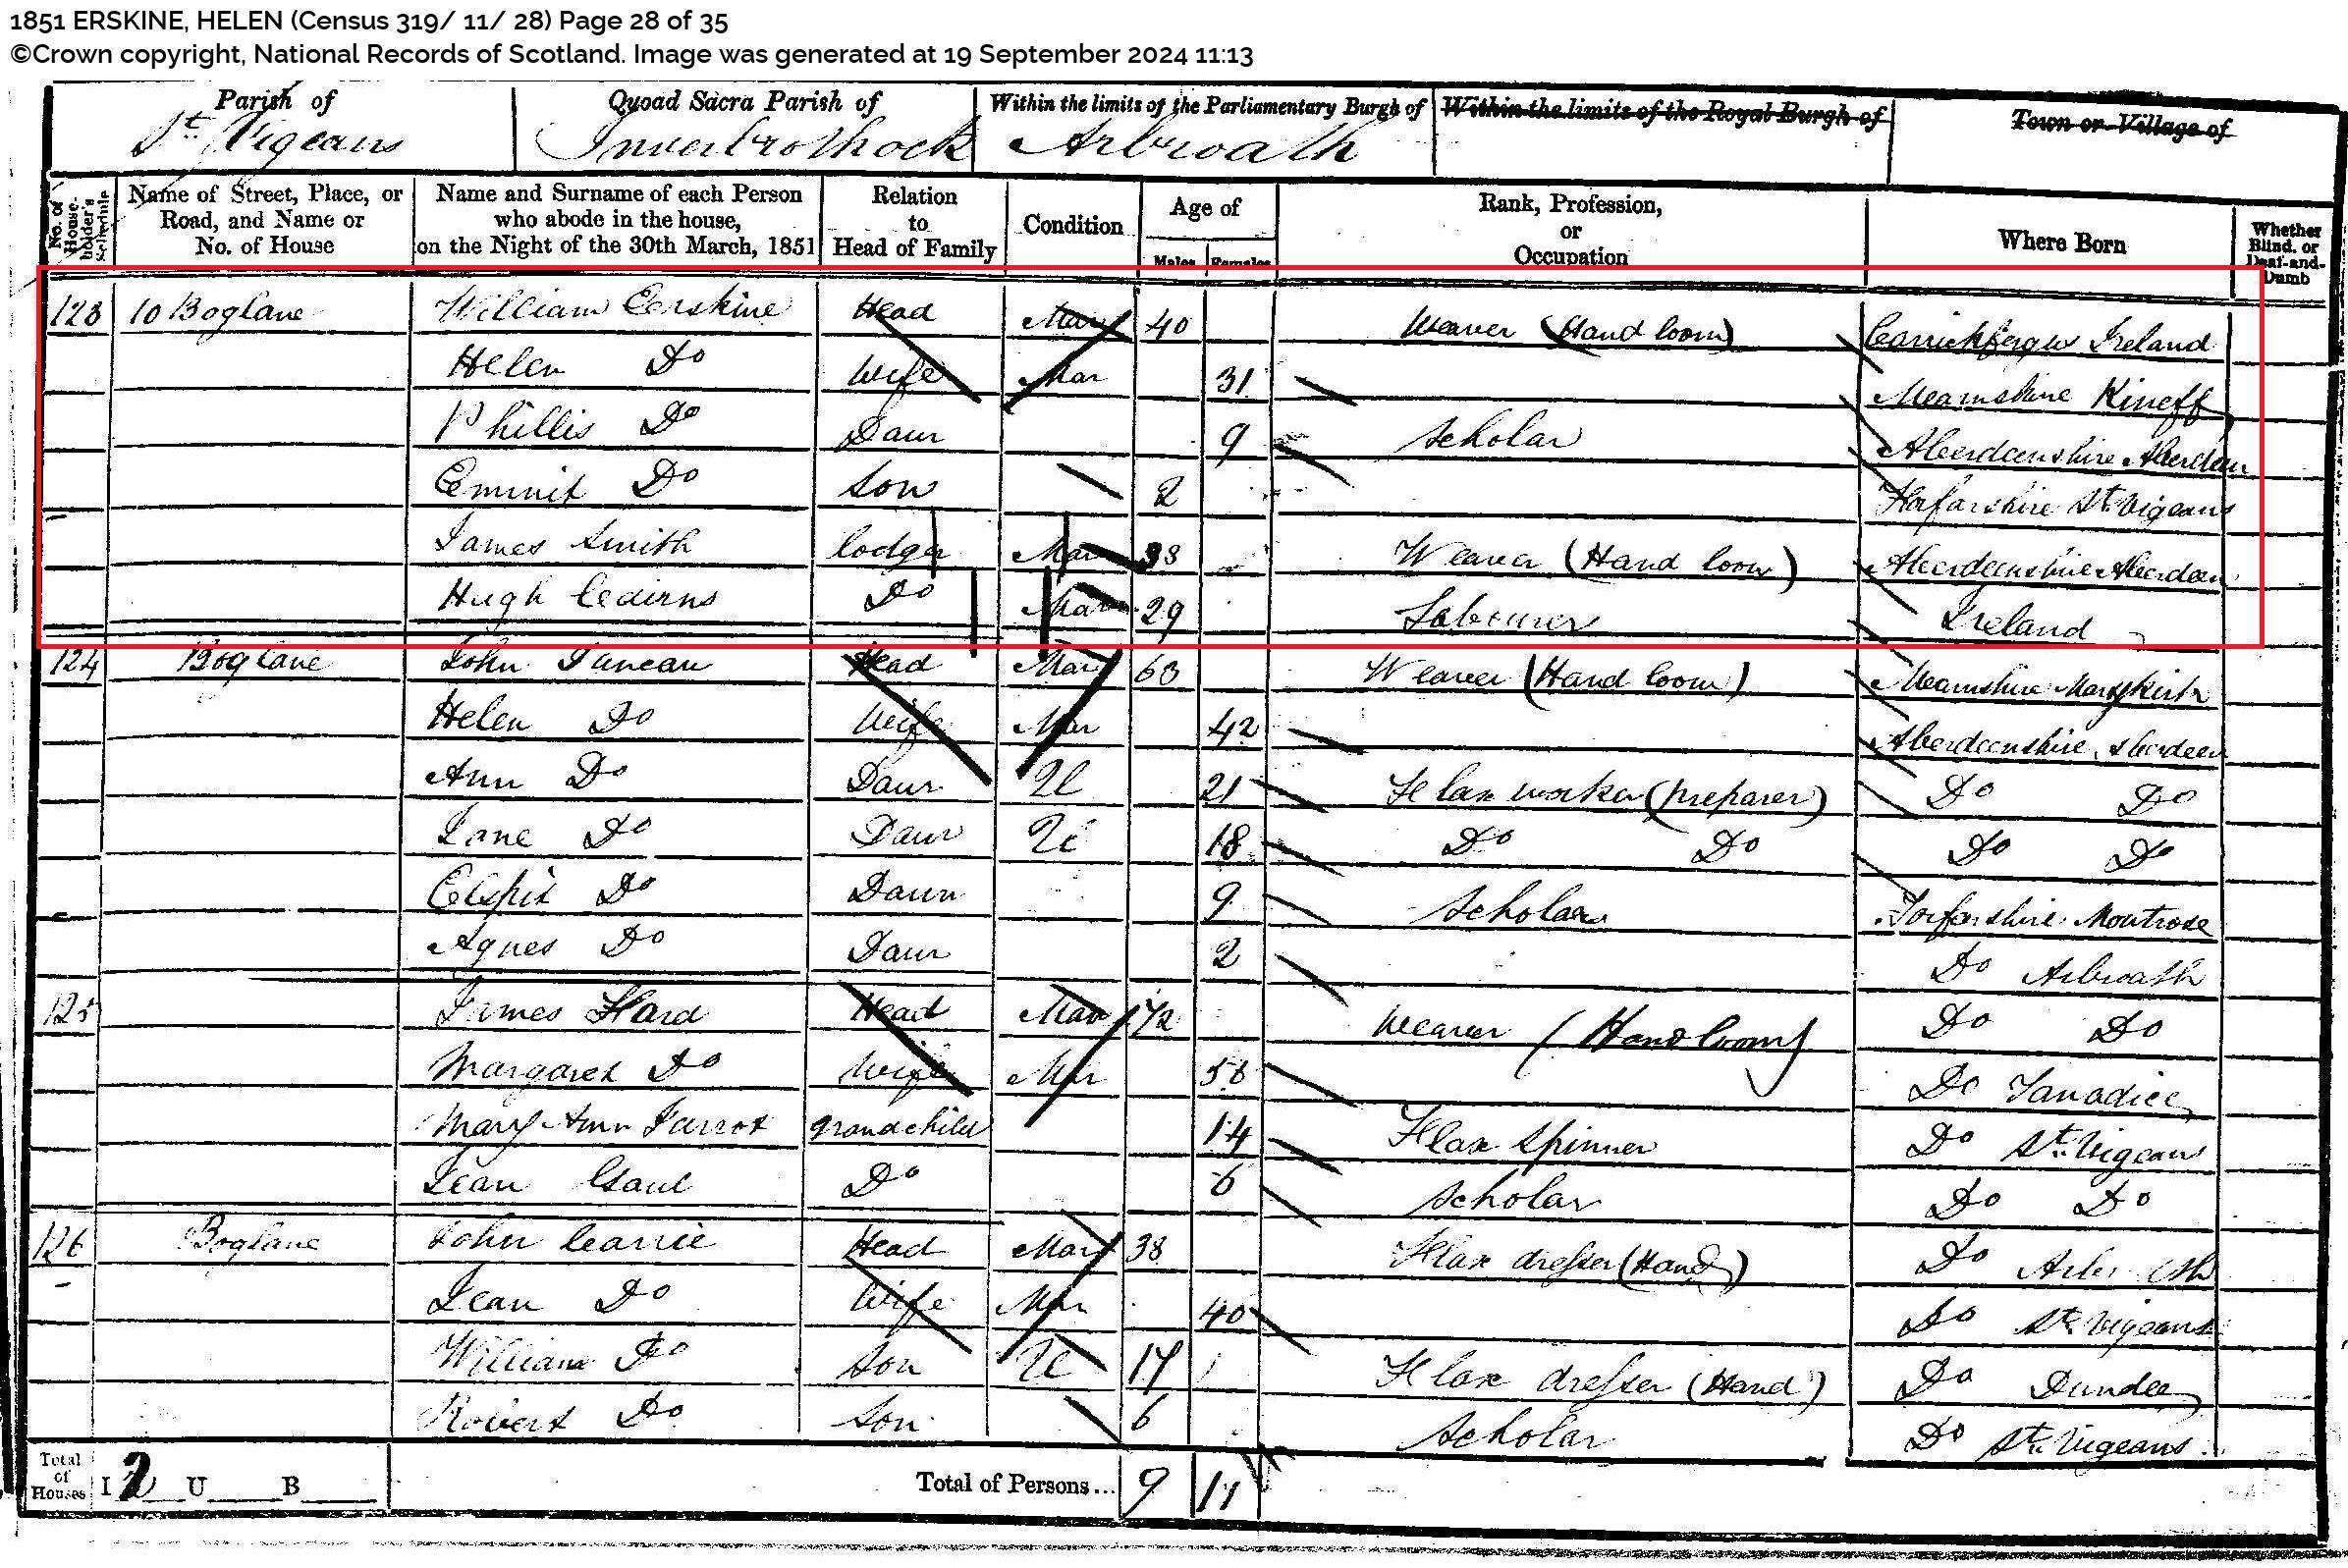 1851 ERSKINE, HELEN (Census 319/ 11/ 28) Page 28 of 35
©Crown copyright, National Records of Scotland. Image was generated at 19 September 2024 11:13
Parish of Quoad Sacra Parish of Within the limits of the Parliamentary Burgh of Within the limits of the Royal Burgh of Town or Village of
St. Vigeans Inverbrothock Arbroath
No. of House-holder's Schedule Name of Street, Place, or Road, and Name or No. of House Name and Surname of each Person who abode in the house, on the Night of the 30th March, 1851 Relation to Head of Family Condition Age of Males Females Rank, Profession, or Occupation Where Born Whether Blind, or Deaf-and-Dumb
123 10 Boglane William Eerskine Head Mar 40 Weaver (Hand loom) Carrickfergus Ireland
Helen Do Wife Mar 31 Mearnshire Kineff
Phillis Do Daur 9 Scholar Aberdeenshire Aberdeen
Do Son 2 Forfarshire St. Vigeans
James Smith lodger Mar 38 Weaver (Hand loom) Aberdeenshire Aberdeen
Hugh Ceairns Do Mar 29 Labourer Ireland
124 Boglane John Duncan Head Mar 60 Weaver (Hand loom) Mearnshire Marykirk
Helen Do Wife Mar 42 Aberdeenshire Aberdeen
Ann Do Daur U 21 Flax worker (preparer) Do Do
Jane Do Daur U 18 Do Do Do Do
Elspit Do Daur 9 Scholar Forfarshire Montrose
Agnes Do Daur 2 Do Arbroath
125 James Head Mar 72 Weaver (Hand loom) Do Do
Margaret Do Wife Mar 56 Do Tanadice
Mary Ann Jarrot grandchild 14 Flax Spinner Do St. Vigeans
Jean Gaul Do 6 Scholar Do Do
126 Boglane John Carrie Head Mar 38 Flax dresser (Hand) Do Arbroath
Jean Do Wife Mar 40 Do St. Vigeans
William Do Son U 17 Flax dresser (Hand) Do Dundee
Robert Do Son 6 Scholar Do St. Vigeans
Total of Houses I 2 U B Total of Persons... 9 11